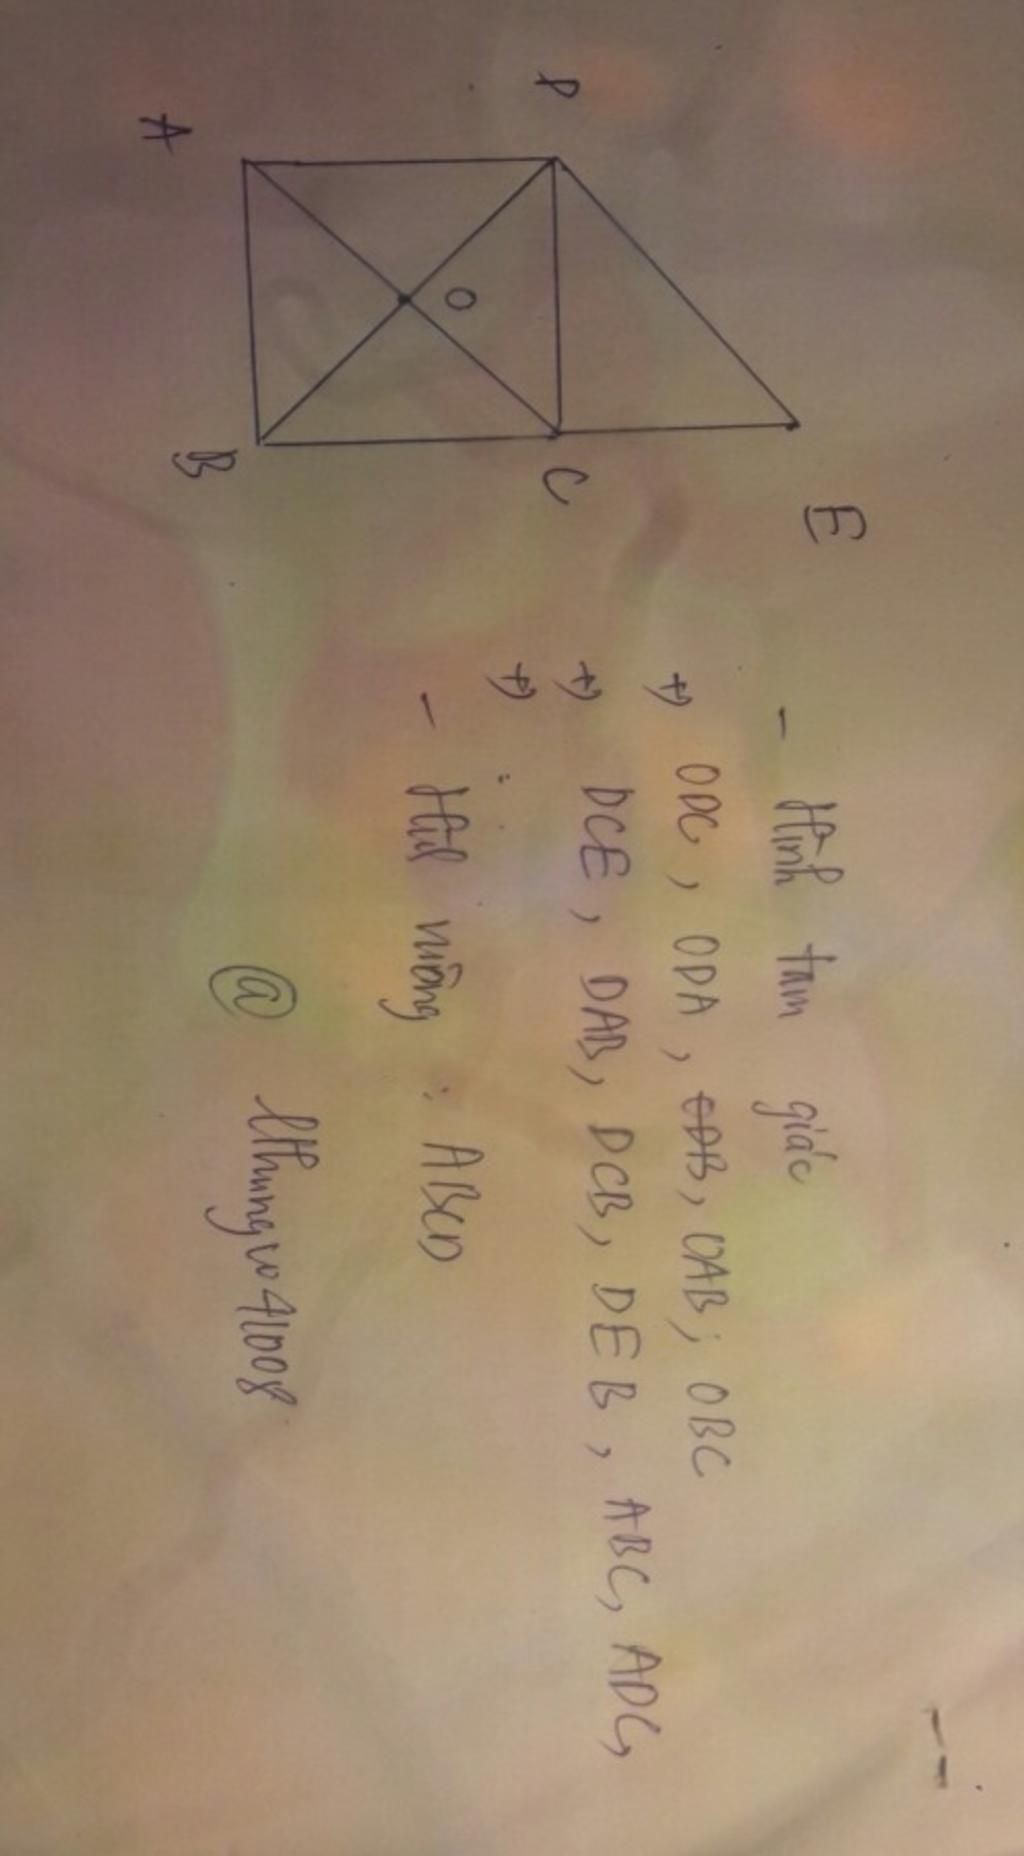 A
D
O
B
C
E
- Hình tam giác
+) ODC, ODA, ODB, OAB; OBC
+) DCE, DAB, DCB, DEB, ABC, ADC,
+) :
- Hình vuông : ABCD
@